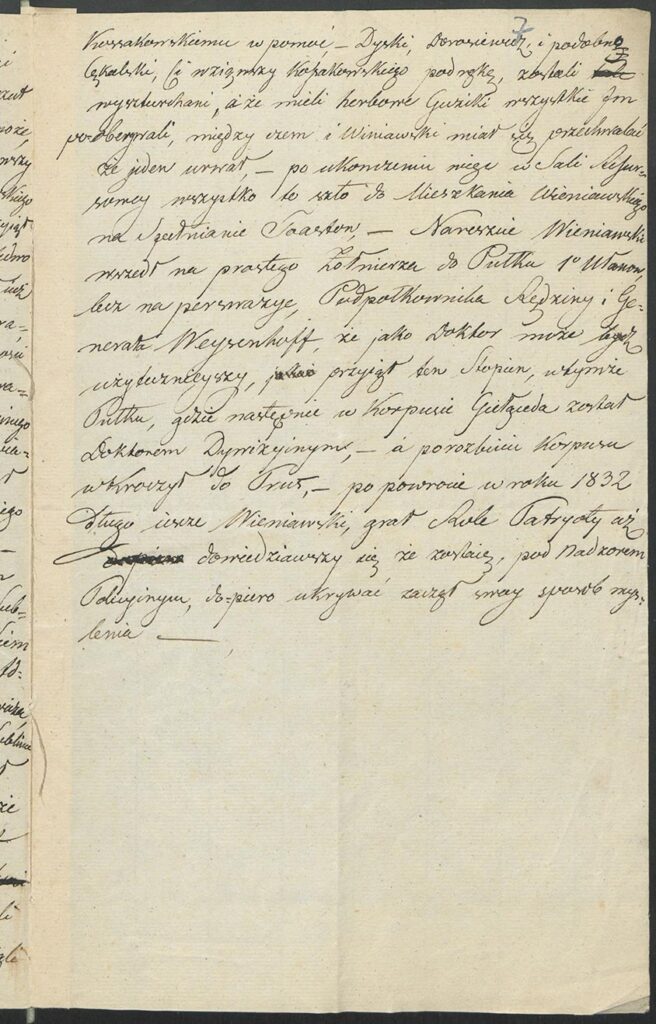 7
Kossakowskiemu w pomoc, – Dyski, Dorosiewicz, i podobno
Cękalski, Ci wziąwszy Kossakowskiego pod rękę, zostali
wyszturchani, a że mieli herbowe Guziki wszystkie Jm
poobergrali, między czem i Winiawski miał się przechwalać
że jeden urwał, – po ukonczeniu więc w Sali Ressur=
sowey wszystko to szło do Mieszkania Wieniawskiego
na Spełnianie Toastow, – Nareszcie Wieniawski
wszedł na prostego Żołnierza do Pułku 1o Ułanow
lecz na perswazye, Podpołkownika Rędziny i Ge=
nerała Weysenhoff, że jako Doktor może bydź
użytecznieyszy, przyiął ten Stopien, wtymże
Pułku, gdzie następnie w Korpusie Giełguda został
Doktorem Dywizyinym, – a porozbiciu Korpusu
wkroczył do Prus, – po powrocie w roku 1832
długo iesze Wieniawski, grał Role Patryoty aż
dowiedziawszy się że zostaie, pod Nadzorem
Policyinym, do=piero ukrywać zaczął swoy sposob mys=
lenia —